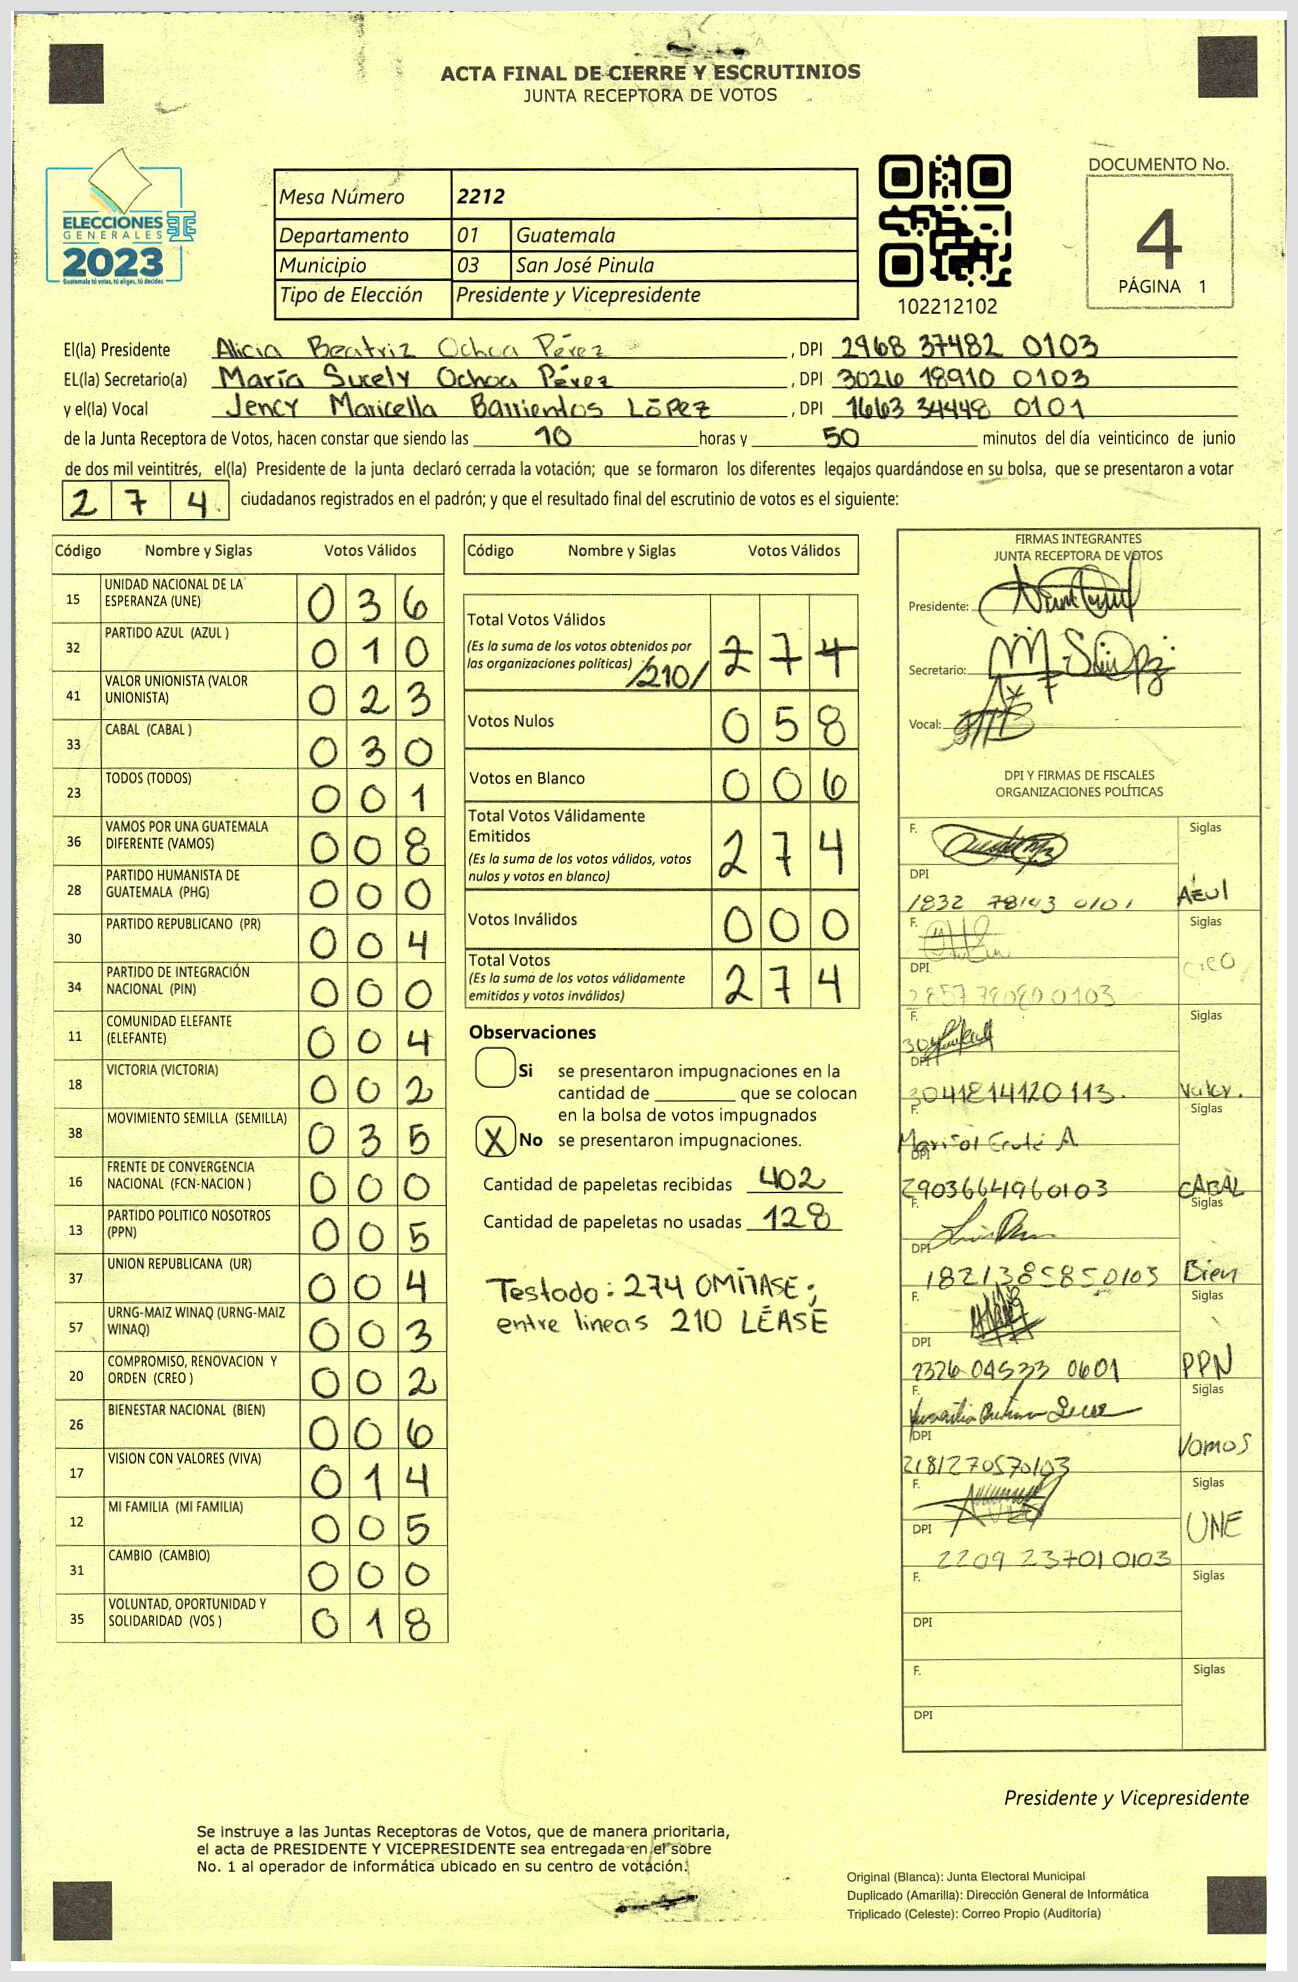 ACTA FINAL DE CIERRE Y ESCRUTINIOS
JUNTA RECEPTORA DE VOTOS
ELECCIONES
GENERALES
2023
Guatemala tú votas, tú eliges, tú decides
Mesa Número 2212
Departamento 01 Guatemala
Municipio 03 San José Pinula
Tipo de Elección Presidente y Vicepresidente
102212102
DOCUMENTO No.
4
PÁGINA 1
El(la) Presidente Alicia Beatriz Ochoa Pérez, DPI 2968 37482 0103
EL(la) Secretario(a) María Sucely Ochoa Pérez, DPI 3026 18910 0103
y el(la) Vocal Jency Maricella Barrientos López, DPI 1663 34448 0101
de la Junta Receptora de Votos, hacen constar que siendo las 10 horas y 50 minutos del día veinticinco de junio
de dos mil veintitrés, el(la) Presidente de la junta declaró cerrada la votación; que se formaron los diferentes legajos guardándose en su bolsa, que se presentaron a votar
274 ciudadanos registrados en el padrón; y que el resultado final del escrutinio de votos es el siguiente:
Código Nombre y Siglas Votos Válidos
15 UNIDAD NACIONAL DE LA ESPERANZA (UNE) 036
32 PARTIDO AZUL (AZUL ) 010
41 VALOR UNIONISTA (VALOR UNIONISTA) 023
33 CABAL (CABAL ) 030
23 TODOS (TODOS) 001
36 VAMOS POR UNA GUATEMALA DIFERENTE (VAMOS) 008
28 PARTIDO HUMANISTA DE GUATEMALA (PHG) 000
30 PARTIDO REPUBLICANO (PR) 004
34 PARTIDO DE INTEGRACIÓN NACIONAL (PIN) 000
11 COMUNIDAD ELEFANTE (ELEFANTE) 004
18 VICTORIA (VICTORIA) 002
38 MOVIMIENTO SEMILLA (SEMILLA) 035
16 FRENTE DE CONVERGENCIA NACIONAL (FCN-NACION ) 000
13 PARTIDO POLITICO NOSOTROS (PPN) 005
37 UNION REPUBLICANA (UR) 004
57 URNG-MAIZ WINAQ (URNG-MAIZ WINAQ) 003
20 COMPROMISO, RENOVACION Y ORDEN (CREO ) 002
26 BIENESTAR NACIONAL (BIEN) 006
17 VISION CON VALORES (VIVA) 014
12 MI FAMILIA (MI FAMILIA) 005
31 CAMBIO (CAMBIO) 000
35 VOLUNTAD, OPORTUNIDAD Y SOLIDARIDAD (VOS ) 018
Código Nombre y Siglas Votos Válidos
Total Votos Válidos
(Es la suma de los votos obtenidos por
las organizaciones políticas) /210/ 274
Votos Nulos 058
Votos en Blanco 006
Total Votos Válidamente
Emitidos
(Es la suma de los votos válidos, votos
nulos y votos en blanco) 274
Votos Inválidos 000
Total Votos
(Es la suma de los votos válidamente
emitidos y votos inválidos) 274
Observaciones
Si se presentaron impugnaciones en la
cantidad de ________ que se colocan
en la bolsa de votos impugnados
X No se presentaron impugnaciones.
Cantidad de papeletas recibidas 402
Cantidad de papeletas no usadas 128
Testado: 274 OMÍTASE;
entre lineas 210 LÉASE
FIRMAS INTEGRANTES
JUNTA RECEPTORA DE VOTOS
Presidente:
Secretario:
Vocal:
DPI Y FIRMAS DE FISCALES
ORGANIZACIONES POLÍTICAS
F. Siglas
DPI
Azul
F. Siglas
DPI
creo
F. Siglas
DPI
3041814120113. Valor.
F. Siglas
Marisol
DPI
2903664960103 CABAL
F. Siglas
DPI
1821385850103 Bien
F. Siglas
DPI
2326 04533 0601 PPN
F. Siglas
DPI
2181270570103 Vamos
F. Siglas
DPI
2209 23701 0103 UNE
F. Siglas
DPI
F. Siglas
DPI
Presidente y Vicepresidente
Se instruye a las Juntas Receptoras de Votos, que de manera prioritaria,
el acta de PRESIDENTE Y VICEPRESIDENTE sea entregada en el sobre
No. 1 al operador de informática ubicado en su centro de votación.
Original (Blanca): Junta Electoral Municipal
Duplicado (Amarilla): Dirección General de Informática
Triplicado (Celeste): Correo Propio (Auditoría)